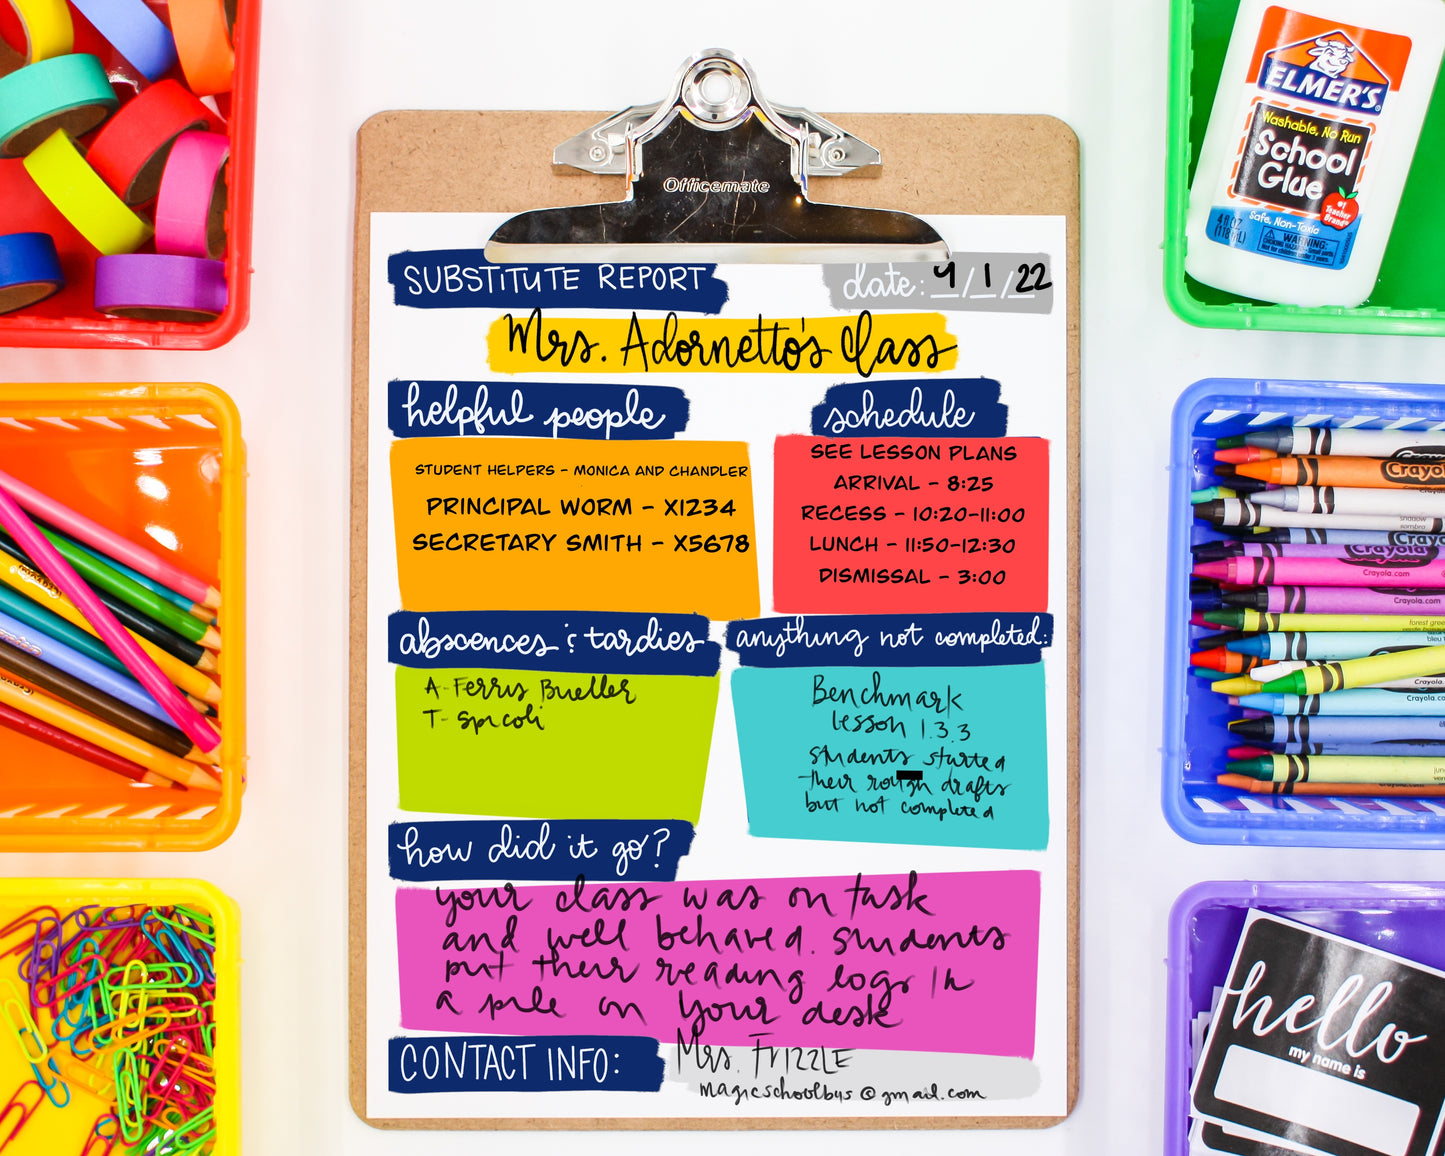 Officemate
SUBSTITUTE REPORT
date: 4/1/22
Mrs. Adornetto's Class
helpful people
STUDENT HELPERS - MONICA AND CHANDLER
PRINCIPAL WORM - X1234
SECRETARY SMITH - X5678
schedule
SEE LESSON PLANS
ARRIVAL - 8:25
RECESS - 10:20-11:00
LUNCH - 11:50-12:30
DISMISSAL - 3:00
abscences & tardies
A - Ferris Bueller
T - Spicoli
anything not completed:
Benchmark
lesson 1.3.3
students started
their rough drafts
but not completed
how did it go?
your class was on task
and well behaved. students
put their reading logs in
a pile on your desk
CONTACT INFO:
Mrs. FRIZZLE
magicschoolbus@gmail.com
ELMER'S
Washable, No Run
School
Glue
#1
Teacher
Brand
Safe, Non-Toxic
4 fl oz
(118 mL)
WARNING:
Crayola
Crayola
Crayola.com
Crayola.com
forest green
Crayola.com
hello
my name is